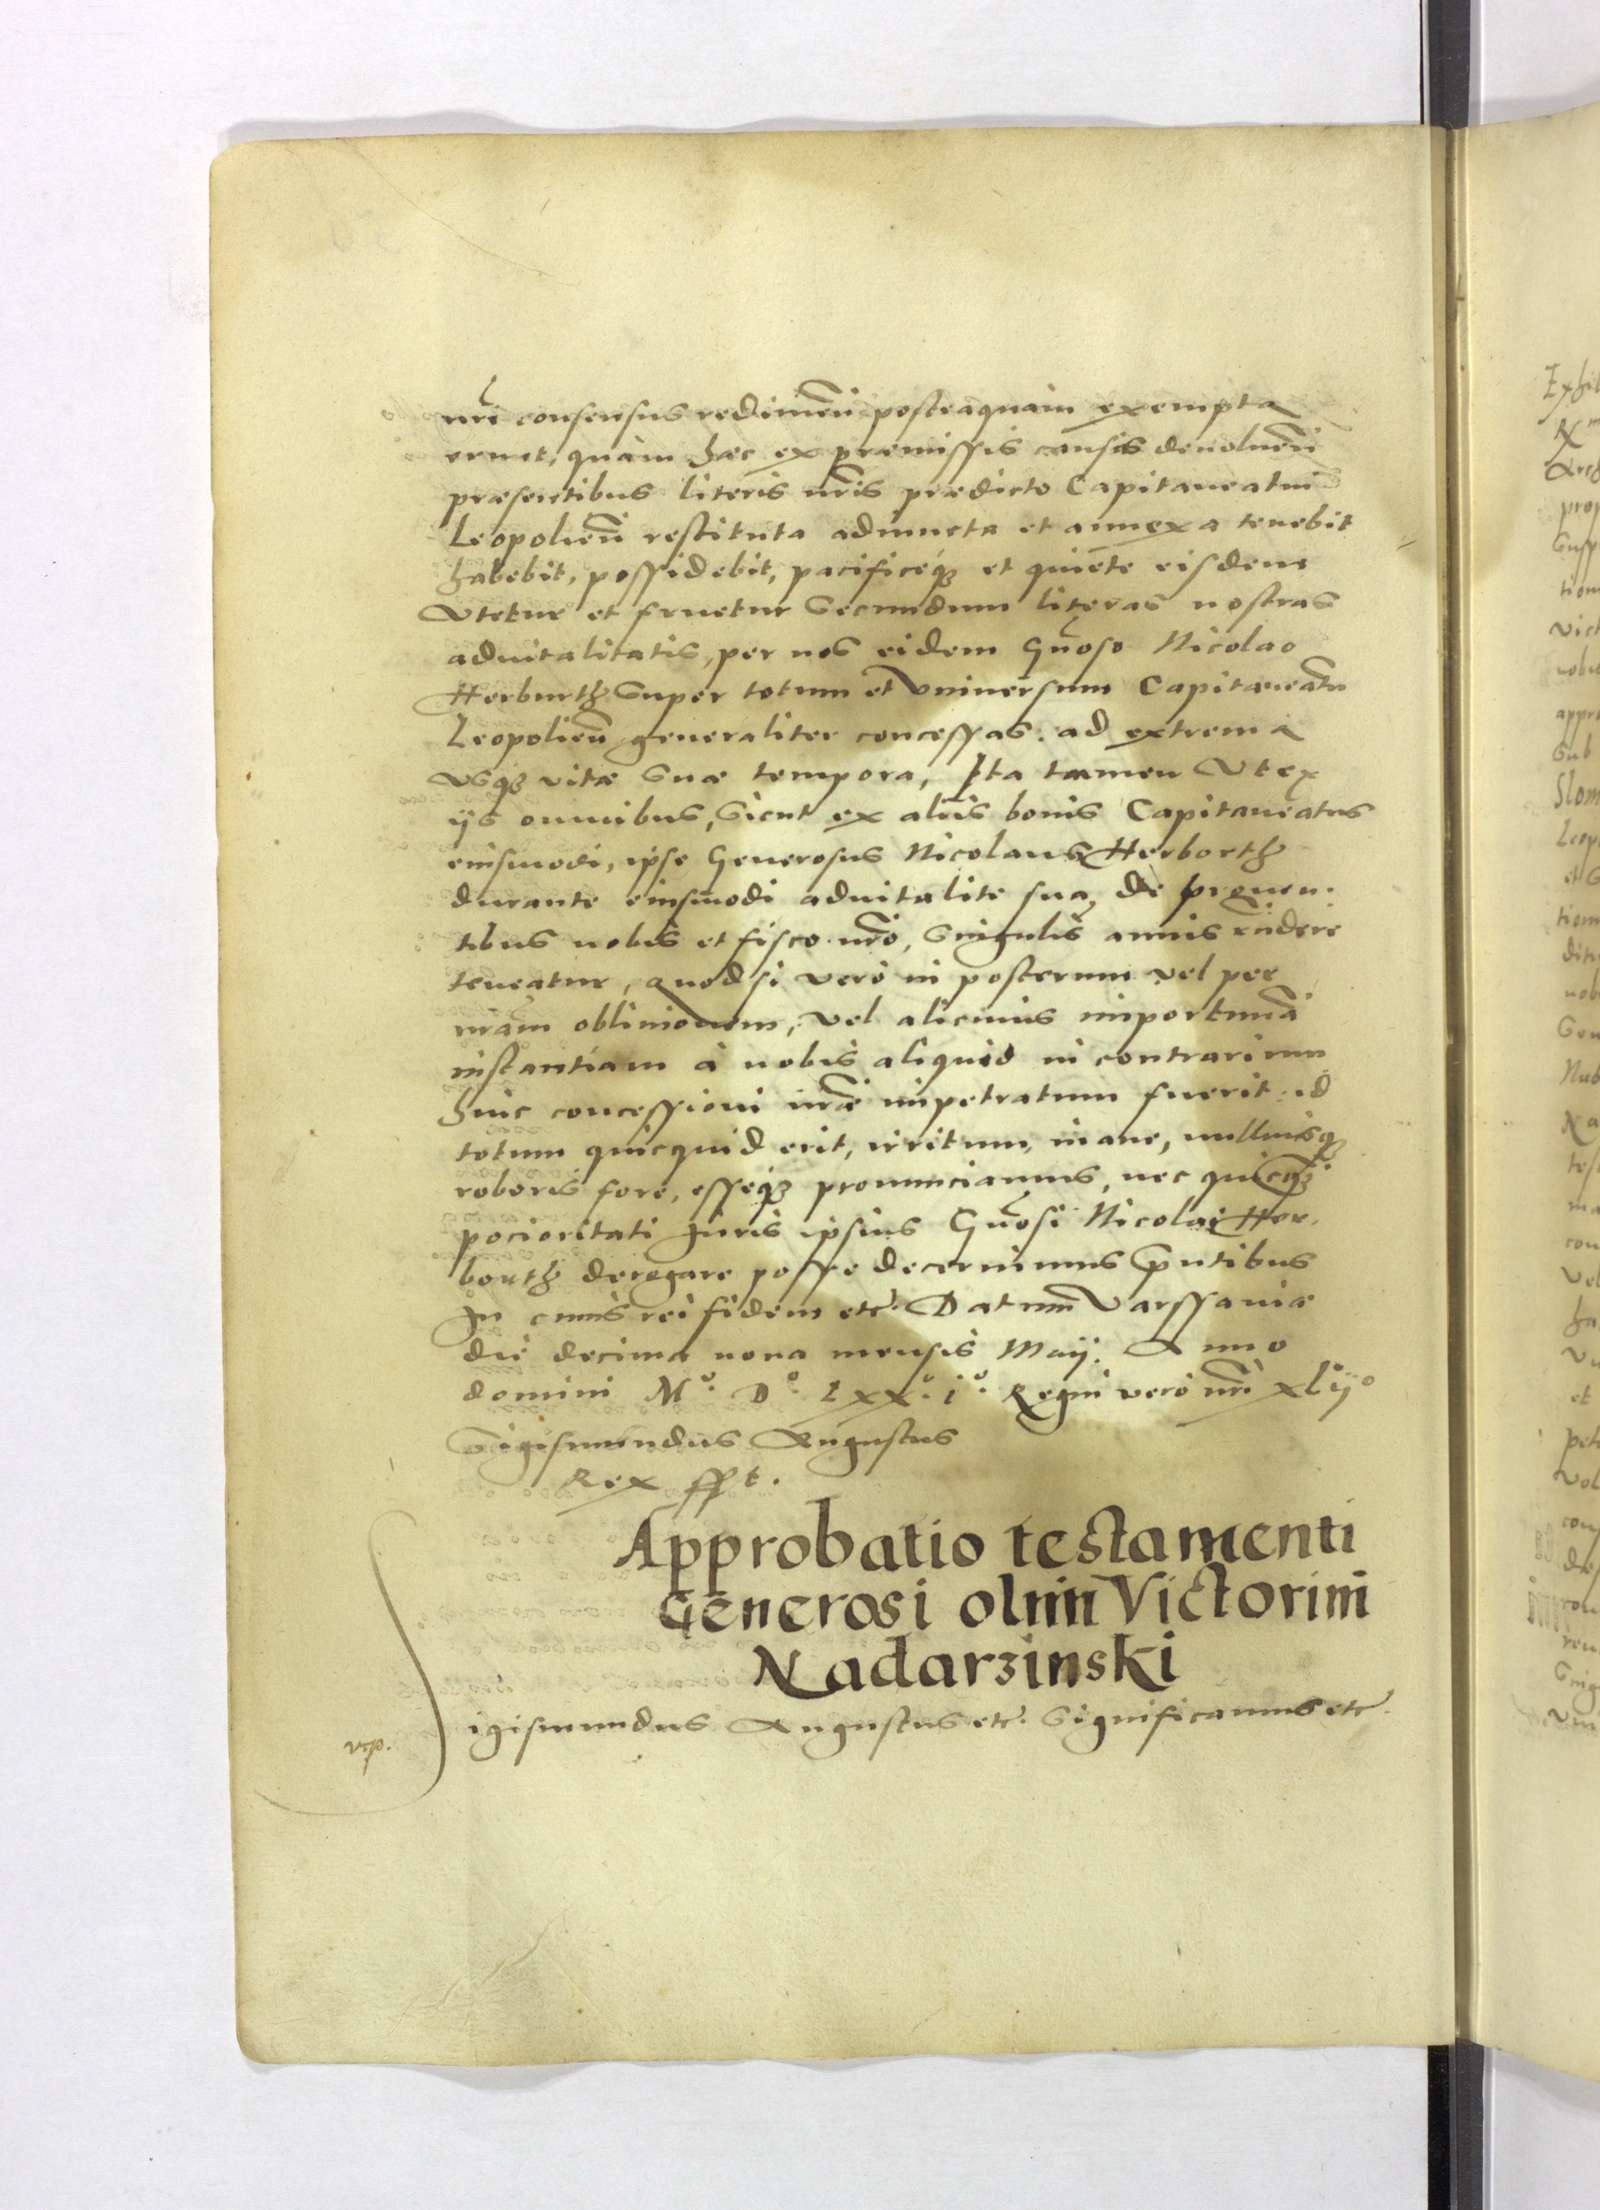 nri consensus redimen posteaquam exempta
eruet, quam haec ex praemissis causis devoluen
praesentibus literis nris praedicto Capitaneatui
Leopolien restituta adiuncta et annexa tenebit
habebit, possidebit, pacificeq et quiete eisdem
Utetur et fruetur secundum literas nostras
advitalitatis, per nos eidem Gnoso Nicolao
Herburth super totum et Universum Capitaneatu
Leopolien generaliter concessas. ad extrema
usq vitae suae tempora, Ita tamen Ut ex
ijs omnibus, sicut ex alijs bonis Capitaneatus
eiusmodi, ipse Generosus Nicolaus Herborth
durante eiusmodi advitalite sua, de proven-
tibus nobis et fisco nro, singulis annis rndere
teneatur, quod si vero in posterum vel per
nram oblivionem, vel alicuius importuna
instantiam à nobis aliquid in contrarium
huic concessioni nrae impetratum fuerit id
totum quicquid erit, irritum, inane, nulliusq
roboris fore, esseq pronunciamus, nec quicq
pocioritati Juris ipsius Gnosi Nicolai Her-
bourth derogare posse decernimus pntibus
In cuius rei fidem etc. Datum Varssaviae
die decima nona mensis Maij. Anno
domini Mº. Dº. Lxxº. iº. Regni vero nri xLijº
Sigismundus Augustus
Rex sspt.
Approbatio testamenti
Generosi olim Victorini
Nadarzinski
Sigismundus Augustus etc. Significamus etc.